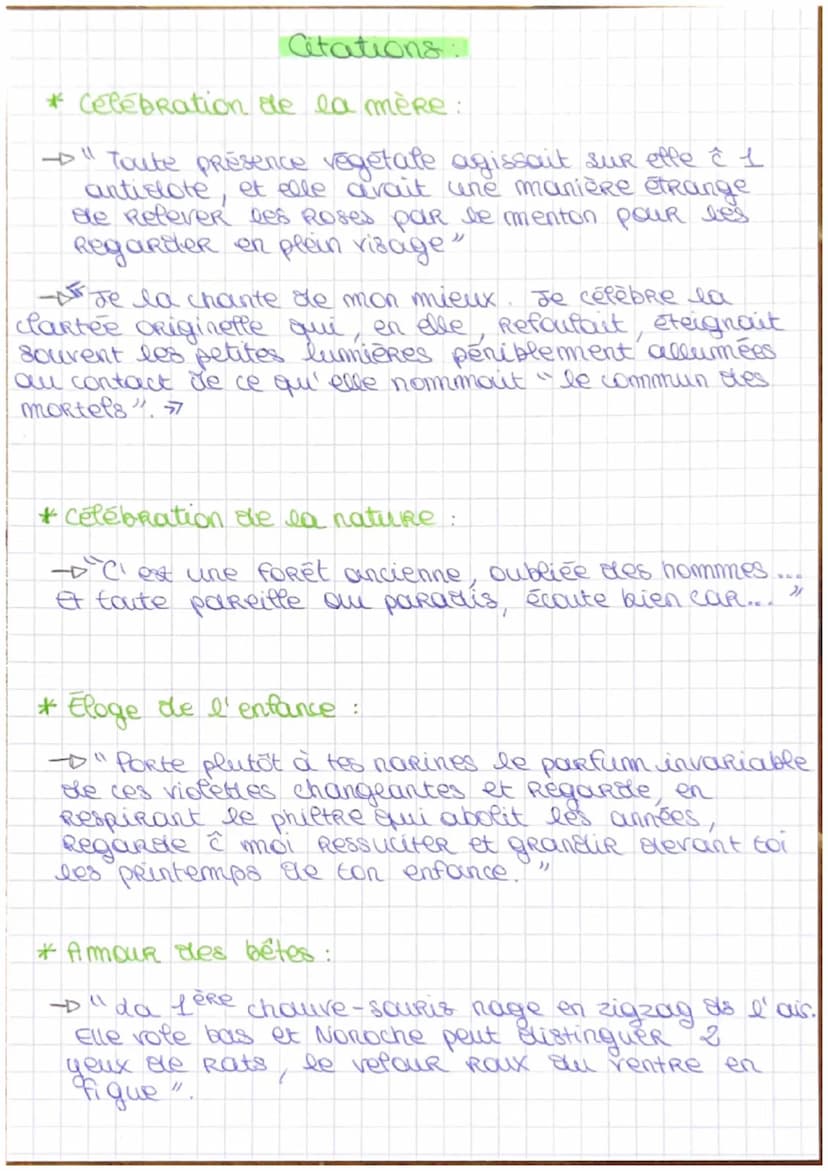 Citations :
* Célébration de la mère :
→ " Toute présence végétale agissait sur elle c̄ 1
antidote, et elle avait une manière étrange
de relever les roses par le menton pour les
regarder en plein visage "
→ " Je la chante de mon mieux. Je célèbre la
clartée originelle qui, en elle, refoulait, éteignait
souvent les petites lumières péniblement allumées
au contact de ce qu'elle nommait " le commun des
mortels ". "
* Célébration de la nature :
→ " C'est une forêt ancienne, oubliée des hommes ...
Et toute pareille au paradis, écoute bien car... "
* Éloge de l'enfance :
→ " Porte plutôt à tes narines le parfum invariable
de ces violettes changeantes et regarde, en
respirant le philtre qui abolit les années,
regarde c̄ moi ressuciter et grandir devant toi
les printemps de ton enfance. "
* Amour des bêtes :
→ " La 1ère chauve-souris nage en zigzag ds l'air.
Elle vole bas et Nonoche peut distinguer 2
yeux de rats, le velour roux du ventre en
figue ".